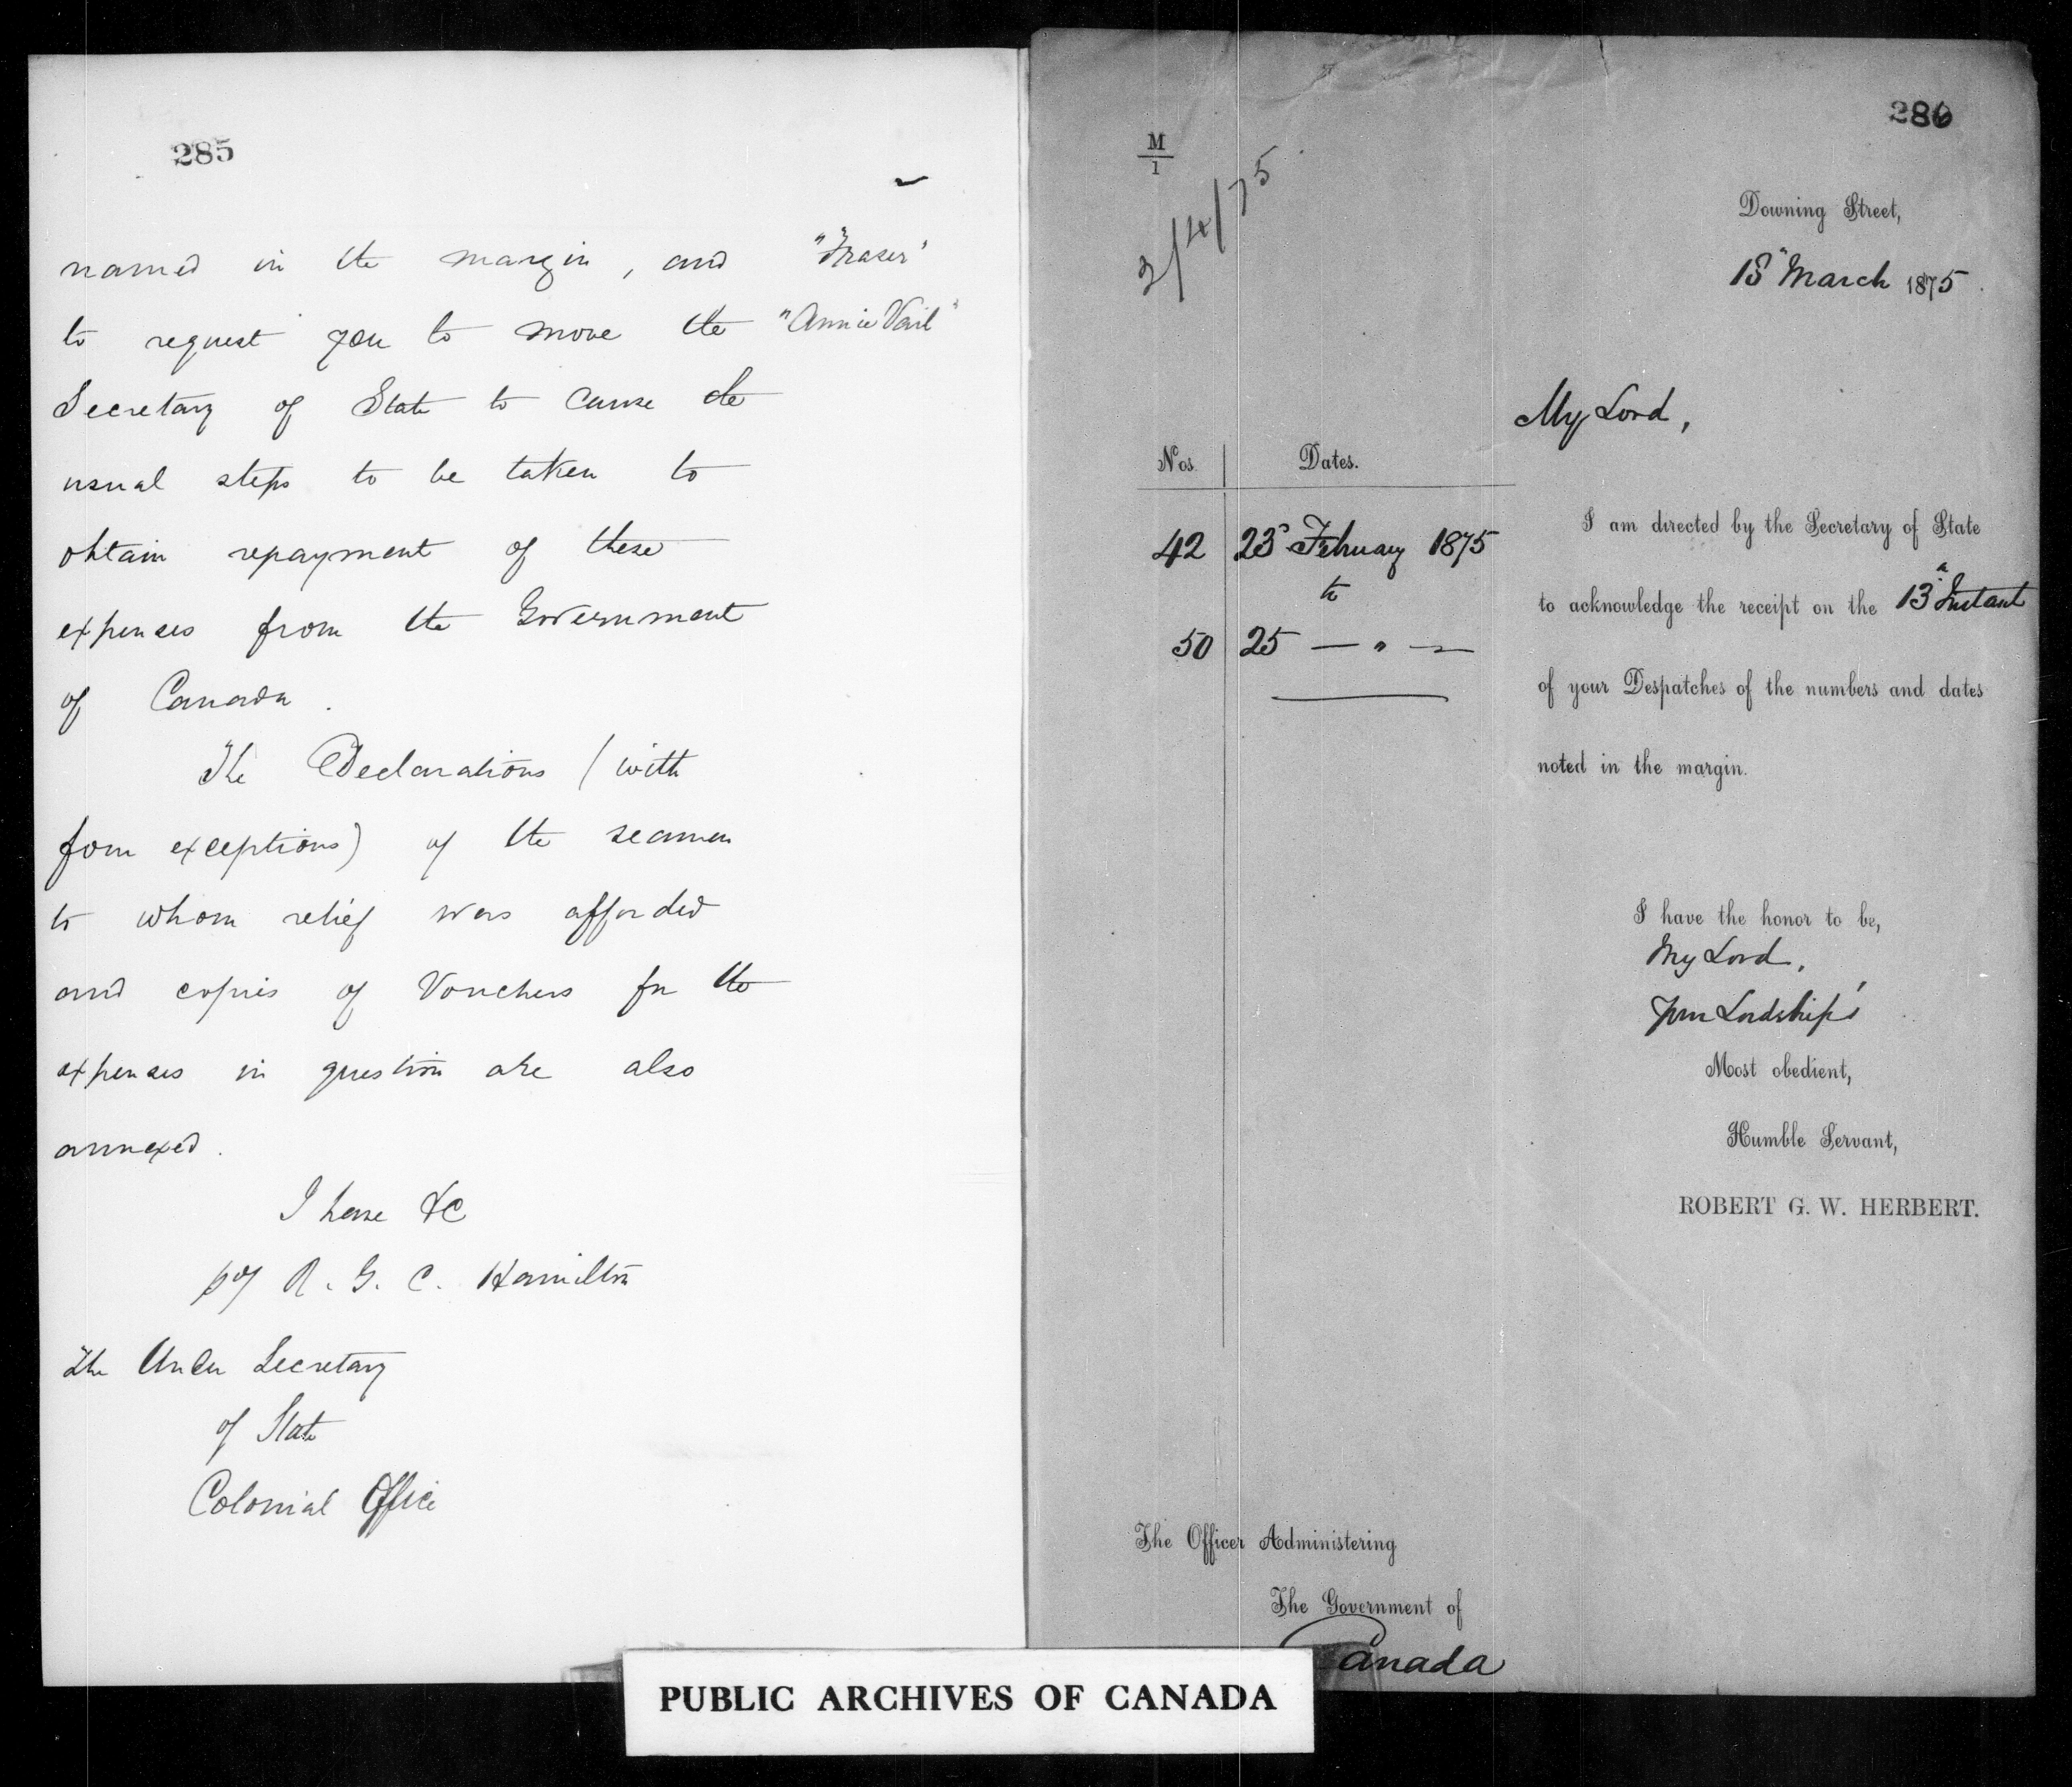 285
named in the margin, and "Fraser"
to request you to move the "Annie Vail"
Secretary of State to cause the
usual steps to be taken to
obtain repayment of these
expenses from the Government
of Canada.
The Declarations (with
four exceptions) of the seamen
to whom relief was afforded
and copies of Vouchers for the
expenses in question are also
annexed.
I have &c
R. G. C. Hamilton
The Under Secretary
of State
Colonial Office
286
M
1
3/4/75
Downing Street,
March 1875.
My Lord,
Nos. Dates.
42 23d February 1875
to
50 25 — " —
I am directed by the Secretary of State
to acknowledge the receipt on the 13th Instant
of your Despatches of the numbers and dates
noted in the margin.
I have the honor to be,
My Lord,
Your Lordship's
Most obedient,
Humble Servant,
ROBERT G. W. HERBERT.
The Officer Administering
The Government of
Canada
PUBLIC ARCHIVES OF CANADA